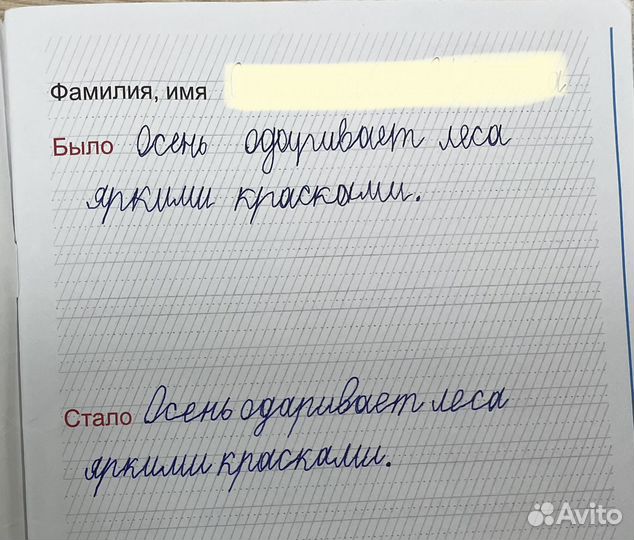 Фамилия, имя
Было Осень одаривает леса
яркими красками.
Стало Осень одаривает леса
яркими красками.
Avito